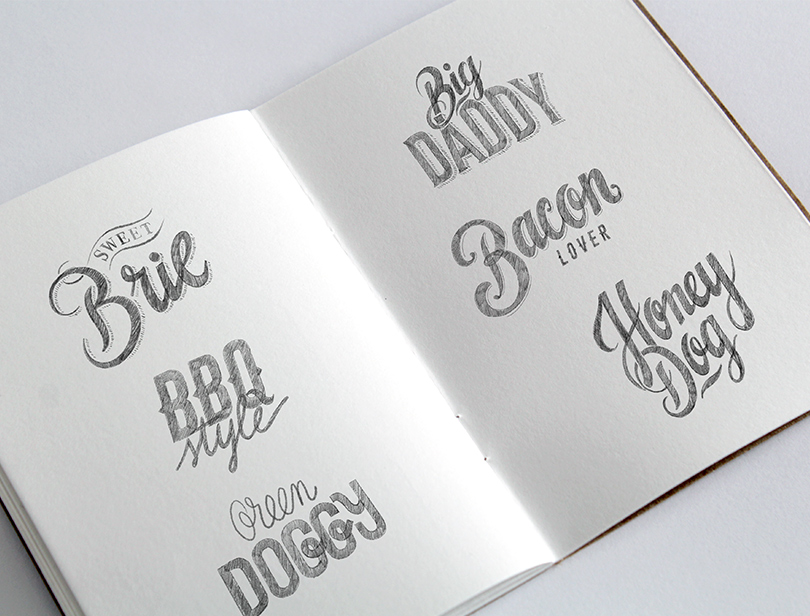 SWEET
Brie
BBQ
style
Green
DOGGY
Big
DADDY
Bacon
LOVER
Honey
Dog